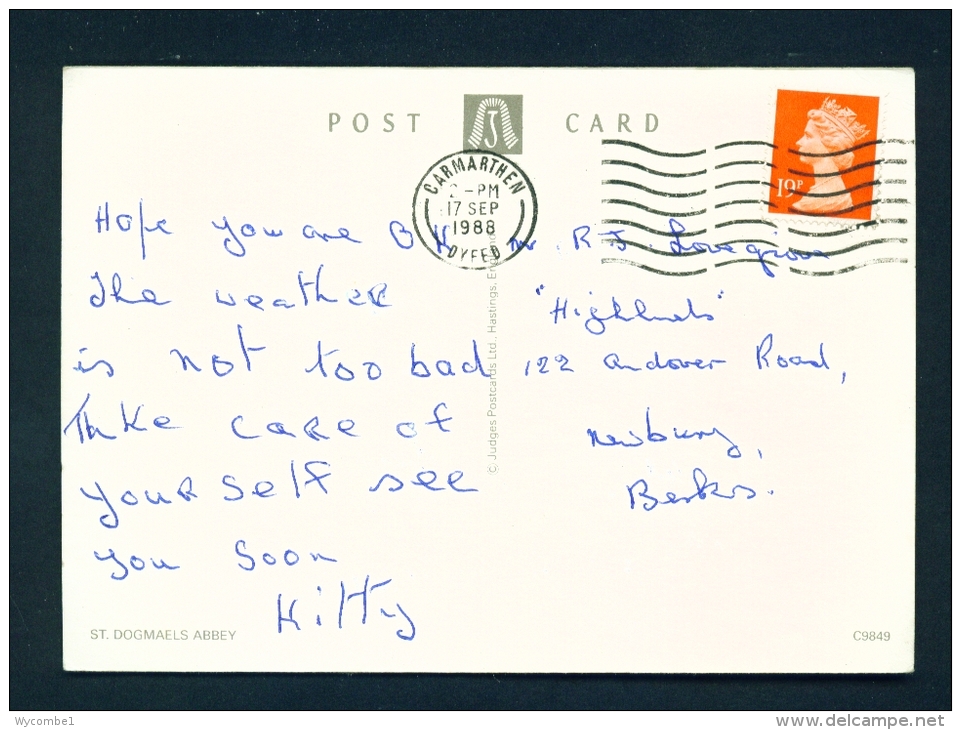 POST CARD
CARMARTHEN
2 - PM
17 SEP
1988
DYFED
19P
Hope you are OK
The weather
is not too bad
Take care of
yourself see
you soon
Kitty
Mr. R J Lovegrove
"Highlands"
122 Andover Road,
Newbury,
Berks.
© Judges Postcards Ltd., Hastings, England
ST. DOGMAELS ABBEY
C9849
Wycombe1
www.delcampe.net